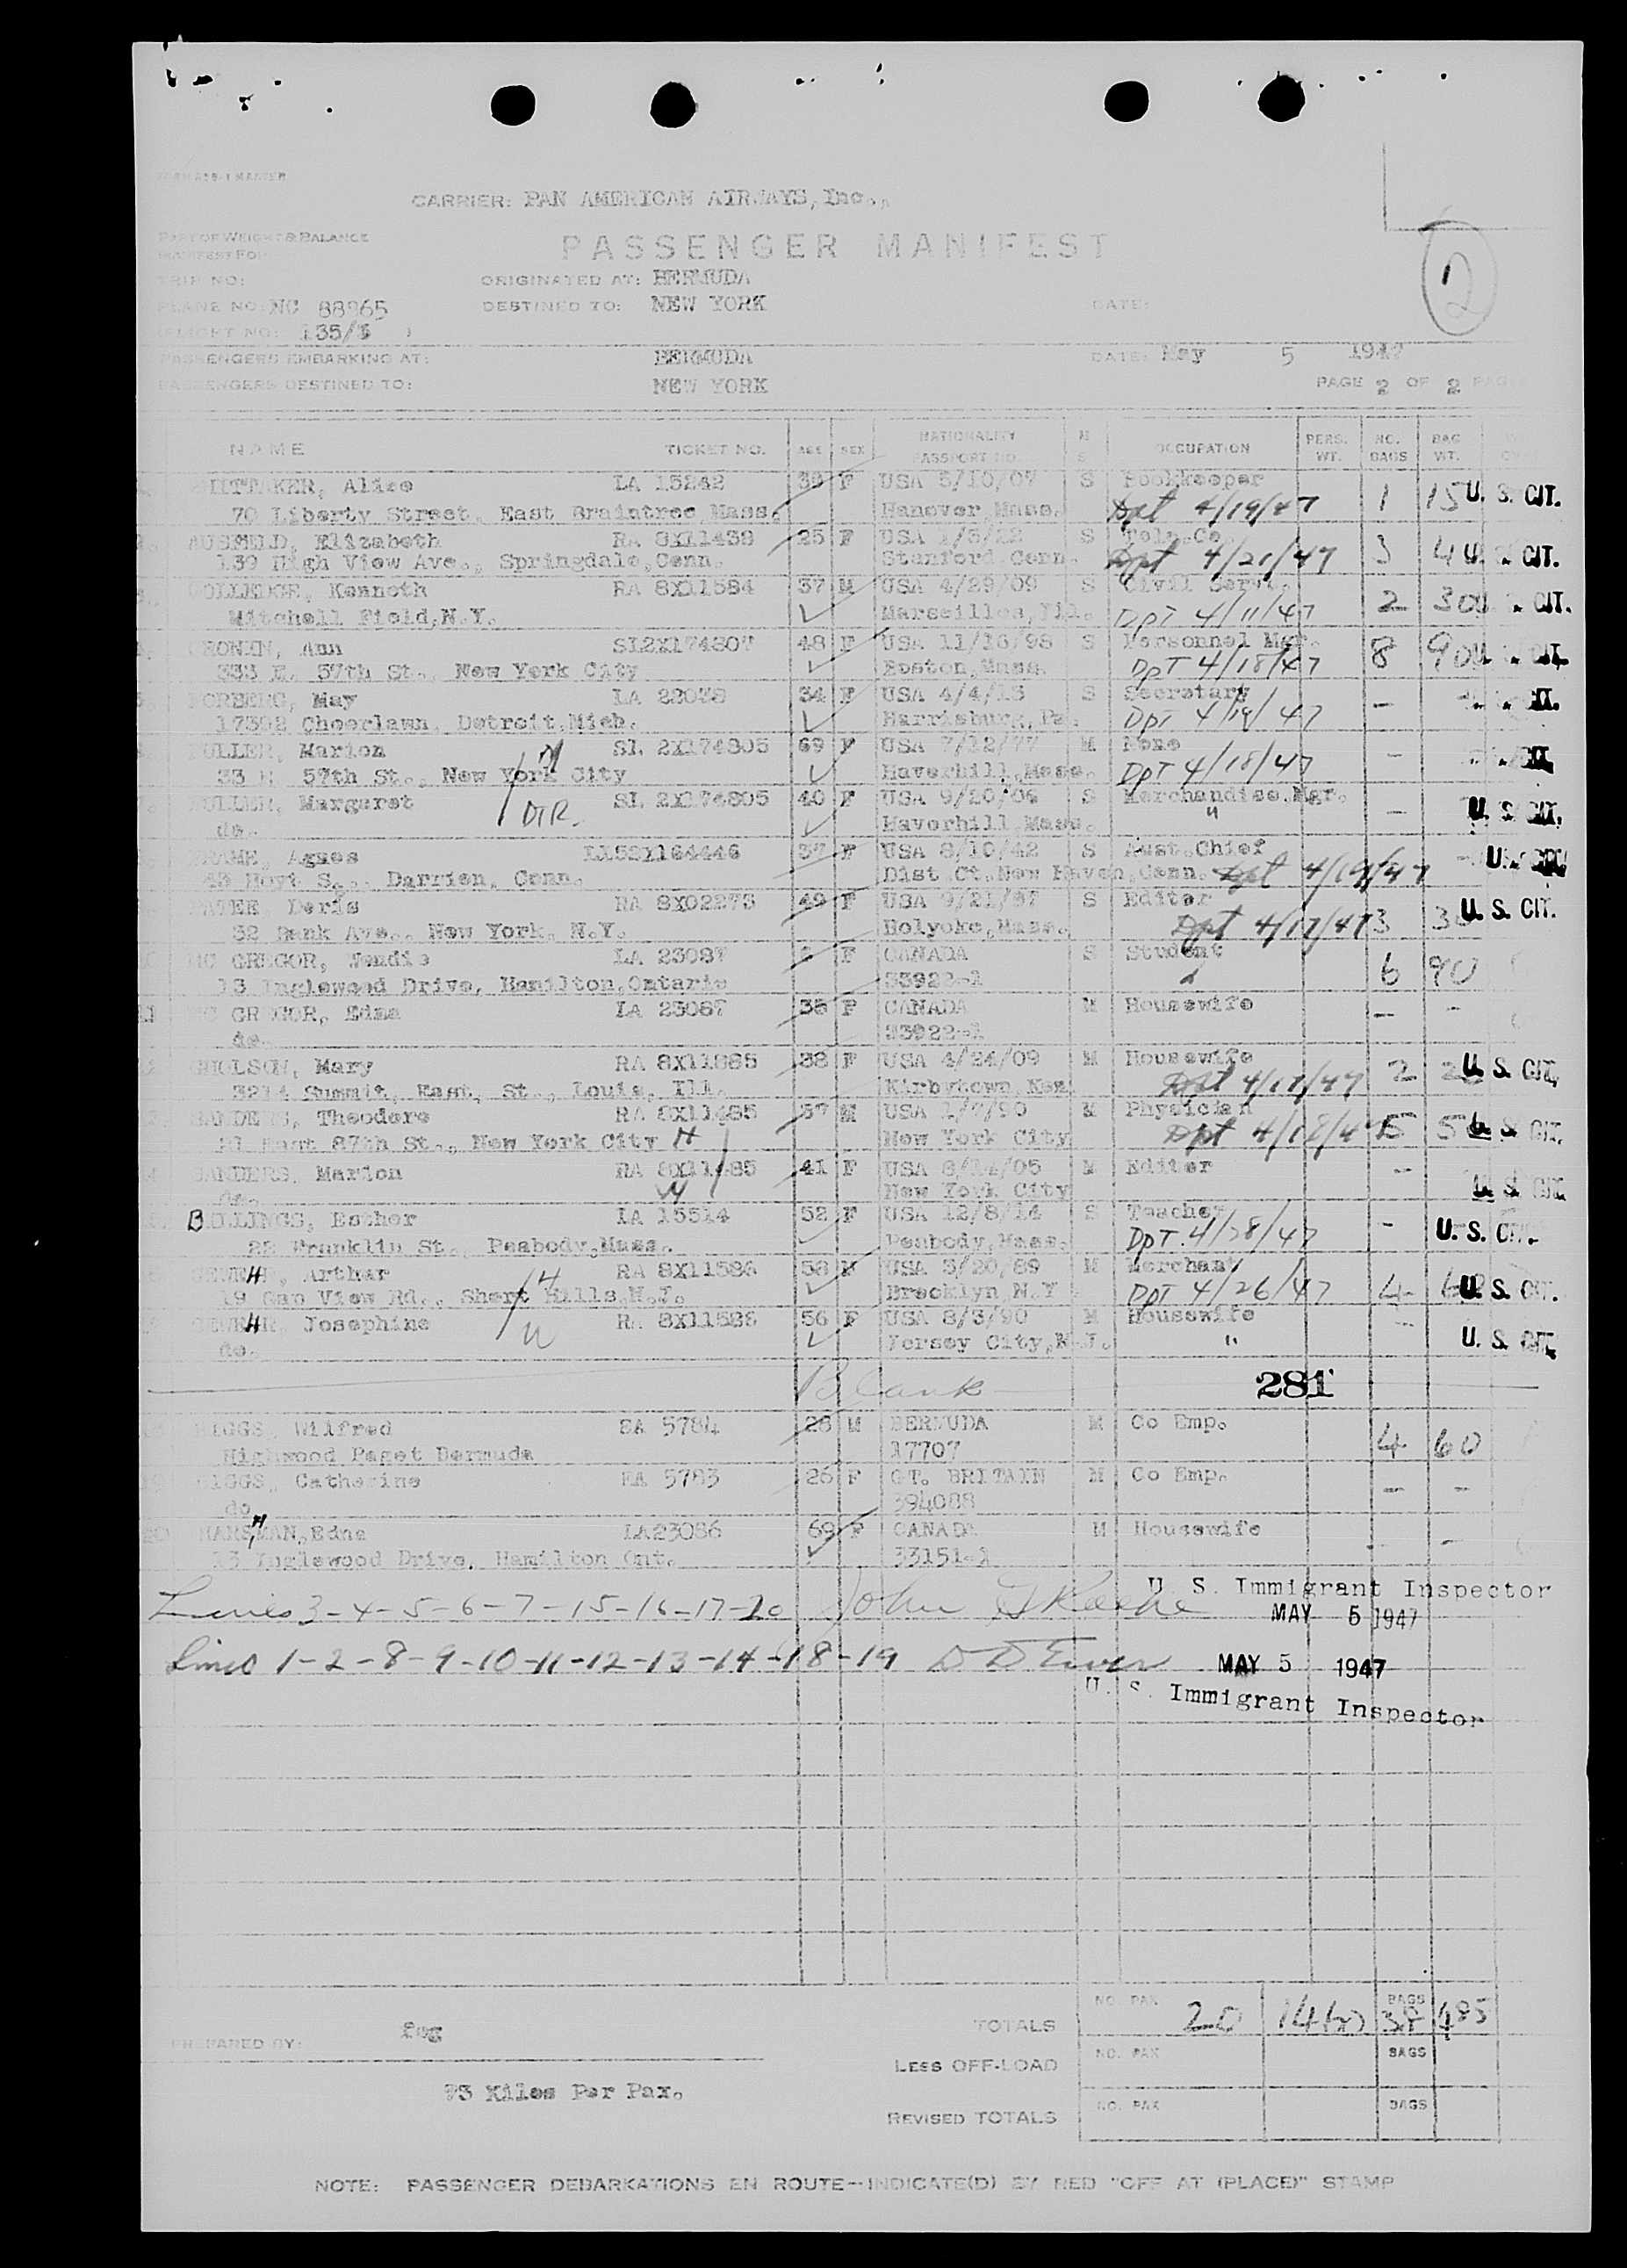 CARRIER: PAN AMERICAN AIRWAYS, Inc.,
PART OF WEIGHT & BALANCE
MANIFEST FOR
PASSENGER MANIFEST
TRIP NO:
ORIGINATED AT: BERMUDA
PLANE NO: NC 88965
DESTINED TO: NEW YORK
DATE:
2
FLIGHT NO: 135/
PASSENGERS EMBARKING AT: BERMUDA DATE: May 5 1947
PASSENGERS DESTINED TO: NEW YORK PAGE 2 OF 2 PAGES
NAME TICKET NO. AGE SEX NATIONALITY PASSPORT NO. M S OCCUPATION PERS. WT. NO. BAGS BAG WT.
WHITTAKER, Alice LA 15242 39 F USA 5/10/07 S Bookkeeper
70 Liberty Street, East Braintree Mass. Hanover Mass. Dpt 4/19/47 1 15 U. S. CIT.
Elizabeth RA 8X11438 25 F USA S Tele. Co.
139 High View Ave., Springdale, Conn. Stamford Conn. Dpt 4/20/47 3 44 CIT.
Kenneth RA 8X11584 37 M USA 4/29/09 S Civil Serv.
Mitchell Field, N.Y. Marseilles, Ill. DPT 4/11/47 2 30 CIT.
CRONIN, Ann SL2X174807 48 F USA 11/16/98 S Personnel Mgr.
333 E. 57th St., New York City Boston, Mass. DPT 4/18/47 8 90 CIT.
May LA 22078 34 F USA 4/4/13 S Secretary
17392 Cheerlawn, Detroit, Mich. Harrisburg, Pa. DPT 4/19/47 - - CIT.
FULLER, Marion SL 2X174805 69 F USA 7/12/77 M None
57th St., New York City Haverhill, Mass. DPT 4/18/47 -
FULLER, Margaret SL 2X174805 40 F USA 9/20/06 S Merchandise Mgr.
do. DTR. Haverhill Mass. " - U. S. CIT.
FRAME, Agnes 37 F USA 8/10/42 S Asst. Chief
Darrien, Conn. Dist Ct. New Haven, Conn. Dpt 4/19/47 - U. S.
Doris RA 8X02273 49 F USA 9/21/97 S Editor
32 Bank Ave., New York, N.Y. Holyoke, Mass. Dpt 4/17/47 3 U. S. CIT.
MC GREGOR, Wendie LA 23087 F CANADA S Student
13 Inglewood Drive, Hamilton, Ontario 33922-1 6 90
11 MC GREGOR, Edna LA 23087 35 F CANADA M Housewife
do. 33922-1 - -
Mary RA 8X11885 38 F USA 4/24/09 M Housewife
3214 Summit, East, St., Louis, Ill. Dpt 4/17/47 2 U. S. CIT.
SANDERS, Theodore RA 8X11485 57 M USA 1/7/90 M Physician
East 87th St., New York City New York City Dpt 4/18/47 5 CIT.
SANDERS, Marion RA 8X11485 41 F USA M Editor
do. New York City - U. S. CIT.
BOLLINGS, Esther LA 15514 52 F USA 12/8/14 S Teacher
22 Franklin St., Peabody, Mass. Peabody, Mass. DPT. 4/28/47 - U. S.
Arthur RA 8X11586 58 M USA 5/20/89 M Merchant
19 View Rd., Short Hills, N.J. Brooklyn, N.Y DPT 4/26/47 4 U. S. CIT.
Josephine RA 8X11586 56 F USA 8/3/90 M Housewife
do. Jersey City, N.J. " U. S. CIT.
Blank 281
Wilfred EA 5784 28 M BERMUDA M Co Emp.
Highwood Paget Bermuda 17707 4 60
Catherine EA 5783 26 F GT. BRITAIN M Co Emp.
do 394088 - -
20 Edna LA23086 69 F CANADA M Housewife
13 Inglewood Drive, Hamilton Ont. 33151-1 - -
Lines 3-4-5-6-7-15-16-17-20 John U. S. Immigrant Inspector
MAY 5 1947
Lines 1-2-8-9-10-11-12-13-14-18-19 MAY 5 1947
U. S. Immigrant Inspector
NO. PAX BAGS
TOTALS 20 1460 38 485
PREPARED BY:
NO. PAX BAGS
LESS OFF-LOAD
73 Kilos Per Pax.
NO. PAX BAGS
REVISED TOTALS
NOTE: PASSENGER DEBARKATIONS EN ROUTE—INDICATE(D) BY RED "OFF AT (PLACE)" STAMP